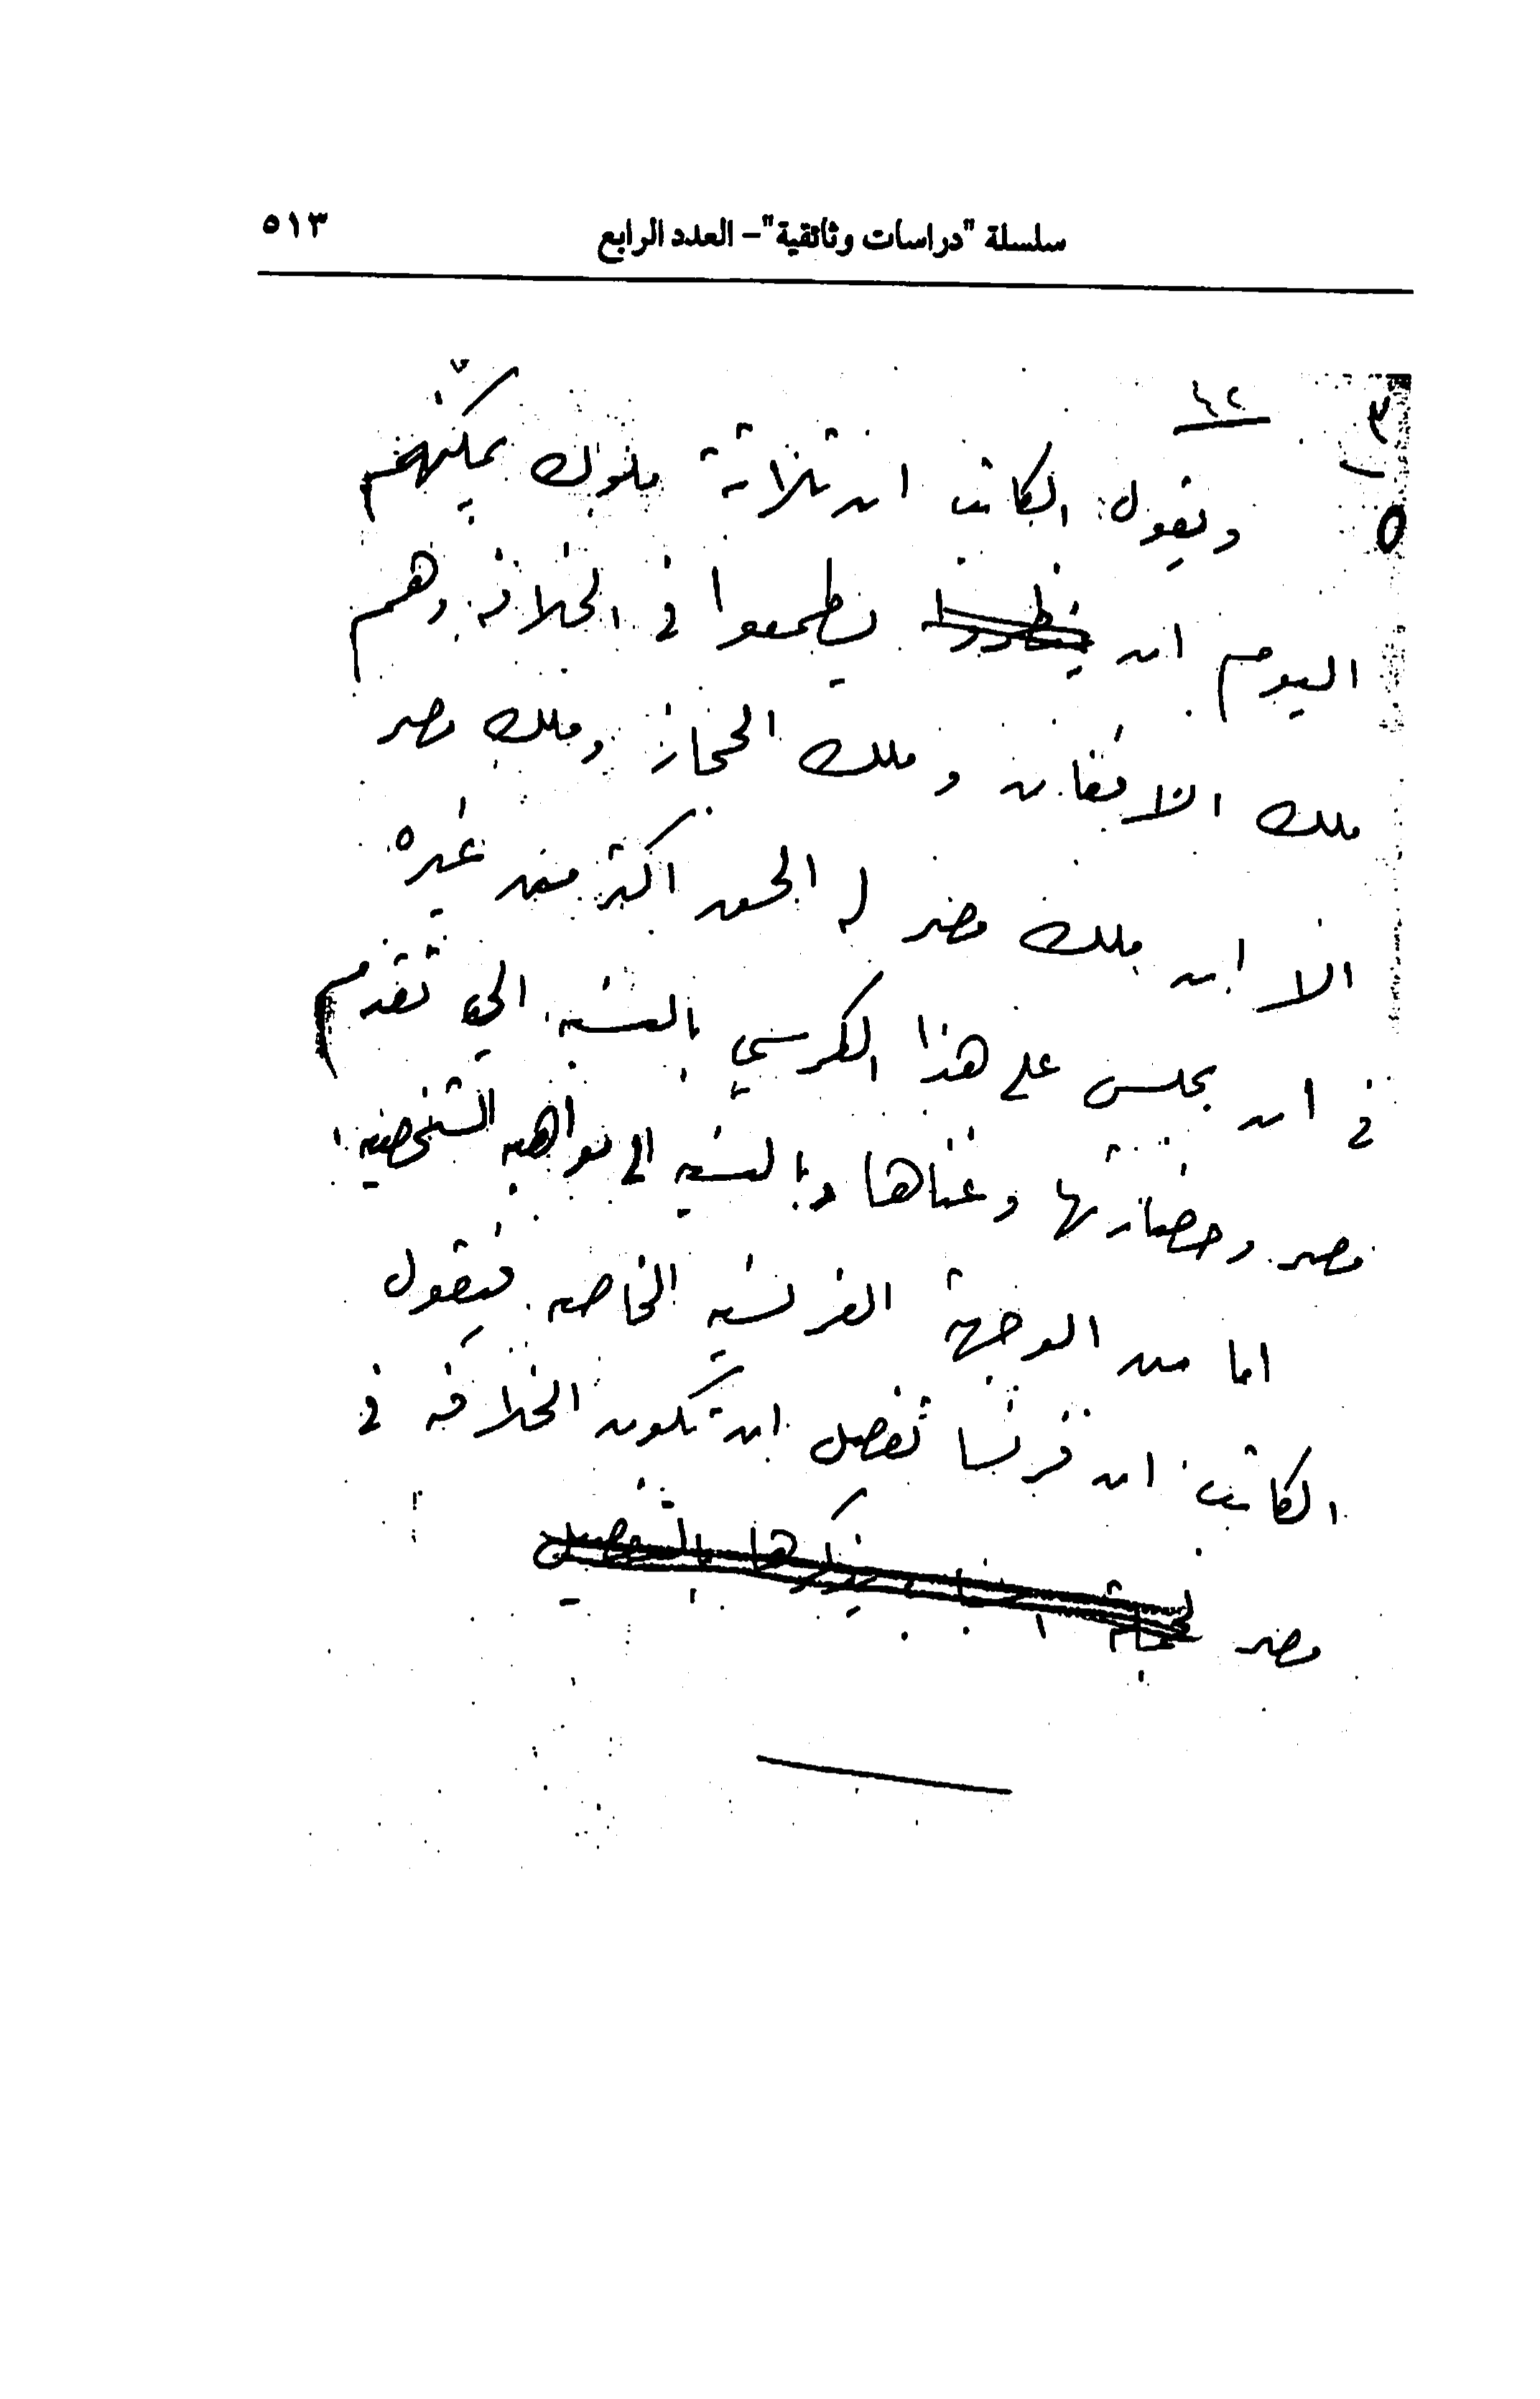 سلسلة "دراسات وثائقية"- العدد الرابع ٥١٣
٣
٤٢
٥
ويقول الكاتب ان ثلاثة ملوك يمكنهم
اليوم ان ينظروا يطمعوا في الخلافه وهم
ملك الافغان وملك الحجاز وملك مصر
الا ان ملك مصر له الحق اكثر من غيره
في ان يجلس على هذا الكرسي بالنسبه الى تقدم
مصر وحضارتها وغناها وبالنسبه الى مواهبه الشخصيه
اما من الوجهة الفرنسيه الخاصه فيقول
الكاتب ان فرنسا تفضل ان تكون الخلافه في
مصر لجملة اسباب يذكرها بالتفصيل